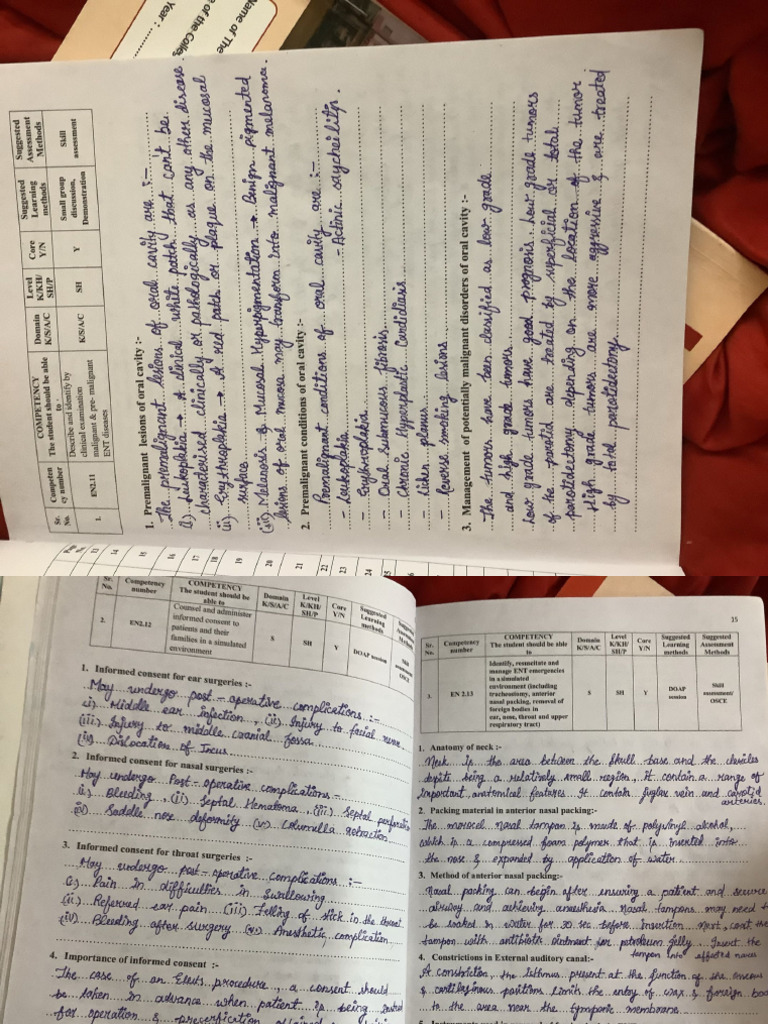 Name of The
e of the Colleg
Year :
Sr. No.
Competen cy number
COMPETENCY The student should be able to -
Domain K/S/A/C
Level K/KH/ SH/P
Core Y/N
Suggested Learning methods
Suggested Assessment Methods
1.
EN2.11
Describe and identify by clinical examination malignant & pre- malignant ENT diseases
K/S/A/C
SH
Y
Small group discussion, Demonstration
Skill assessment
1. Premalignant lesions of oral cavity :-
The premalignant lesions of oral cavity are :-
(i) Leukoplakia → A clinical white patch that can't be
characterised clinically or pathologically as any other disease.
(ii) Erythroplakia → A red patch or plaque on the mucosal
surface
(iii) Melanosis & Mucosal Hyperpigmentation → Benign pigmented
lesions of oral mucosa may transform into malignant melanoma.
2. Premalignant conditions of oral cavity :-
Premalignant conditions of oral cavity are :-
- Leukoplakia - Actinic
- Erythroplakia
- Oral submucous fibrosis
- Chronic Hyperplastic Candidiasis
- Lichen planus
- Reverse smoking lesions.
3. Management of potentially malignant disorders of oral cavity :-
The tumors have been classified as low grade
and high grade tumors.
Low grade tumors have good prognosis. Low grade tumors
of the parotid are treated by superficial or total
parotidectomy depending on the location of the tumor
High grade tumors are more aggressive & are treated
by total parotidectomy.
13
14
15
16
17
18
19
20
21
22
23
24
25
Sr. No.
Competency number
COMPETENCY The student should be able to
Domain K/S/A/C
Level K/KH/ SH/P
Core Y/N
Suggested Learning methods
Suggested Assessment
2.
EN2.12
Counsel and administer informed consent to patients and their families in a simulated environment
S
SH
Y
DOAP session
Skill
OSCE
1. Informed consent for ear surgeries :-
May undergo post-operative complications :-
(i) Middle ear infection, (ii) Injury to facial nerve
(iii) Injury to middle cranial fossa
(iv) Dislocation of Incus.
2. Informed consent for nasal surgeries :-
May undergo Post-operative complications -
(i) Bleeding, (ii) Septal Hematoma, (iii) Septal perforation
iv) Saddle nose deformity (v) Columella retraction
3. Informed consent for throat surgeries :-
May undergo post-operative complications :-
(i) Pain in difficulties in swallowing
(ii) Referred ear pain (iii) Felling of stick in the throat
(iv) Bleeding after surgery (v) Anesthetic complication
4. Importance of informed consent :-
The case of an procedure, a consent should
be taken in advance when patient is being
for operation &
15
Sr. No.
Competency number
COMPETENCY The student should be able to
Domain K/S/A/C
Level K/KH/ SH/P
Core Y/N
Suggested Learning methods
Suggested Assessment Methods
EN 2.13
Identify, resuscitate and manage ENT emergencies in a simulated environment (including tracheostomy, anterior nasal packing, removal of foreign bodies in ear, nose, throat and upper respiratory tract)
S
SH
Y
DOAP session
Skill assessment/ OSCE
1. Anatomy of neck :-
Neck is the area between the skull base and the clavicles
dispite being a relatively small region, it contain a range of
important anatomical features. It contain jugular vein and carotid
arteries.
2. Packing material in anterior nasal packing:-
The merocel nasal tampon is made of polyvinyl alcohol,
which is a compressed foam polymer that is inserted into
the nose & expanded by application of water.
3. Method of anterior nasal packing:-
Nasal packing can begin after ensuring a patient and secure
airway and achieving anesthesia Nasal tampons may need t
be soaked in water for 30 sec before insertion Next, coat the
tampon with antibiotic ointment or petroleum jelly. Insert the
tampon into affected nares
4. Constrictions in External auditory canal:-
A constriction, the isthmus present at the junction of the osseous
& cartilaginous positions limits the entry of wax & foreign bod
to the area near the tympanic membrane.